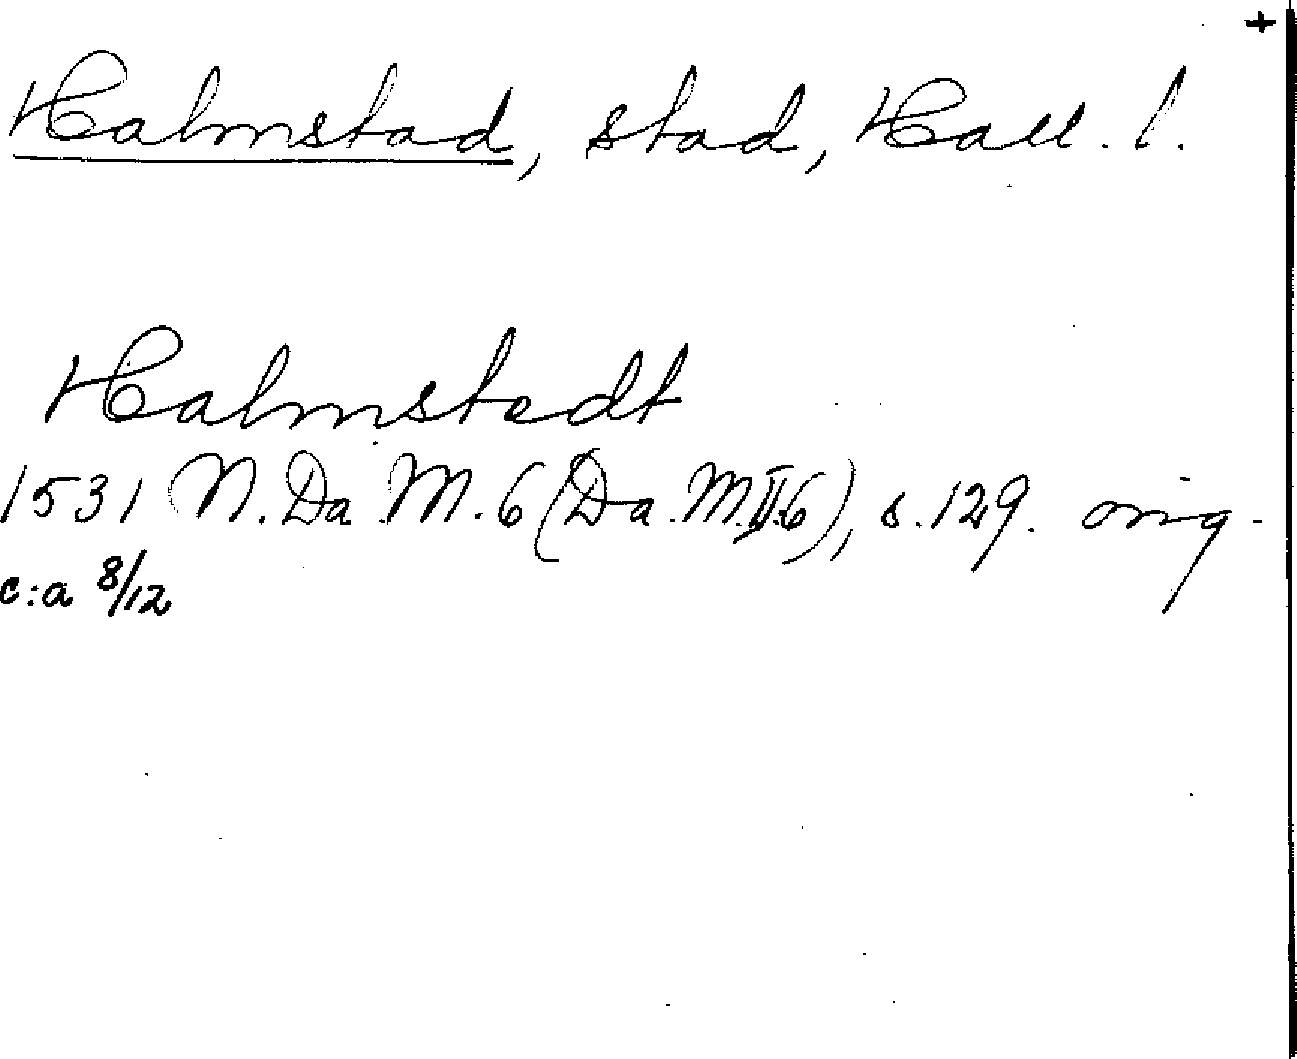 +
Halmstad, stad, Hall. l.
Halmstedt
1531 N. Da. M. 6 (Da. M. II.6), s. 129. orig.
c:a 8/12